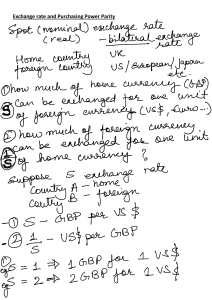 Exchange rate and Purchasing Power Parity
Spot (nominal) exchange rate
(real) - bilateral exchange
rate
Home country UK
foreign country US/European/Japan
etc.
① how much of home currency (GBP)
S can be exchanged for one unit
of foreign currency (US$, Euro...)
② how much of foreign currency
1/S can be exchanged for one unit
of home currency ?
Suppose S exchange rate
Country A - home
Country B - foreign
- ① S - GBP per US $
- ② 1/S - US$ per GBP
eg S = 1 ⇒ 1 GBP for 1 US$
eg S = 2 ⇒ 2 GBP for 1 US$